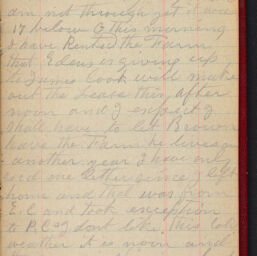 am not through yet it was
17 below 0 this morning
I have Rented the Farm
that Edens is giving up
to James Cook will make
out the Lease this after
noon and I expect I
shall have to let Brown
have the Farm he lives on
another year I have only
recd one letter since I left
home and that was from
E.C. and took exception
to P.C. I dont like this cold
weather it is noon and